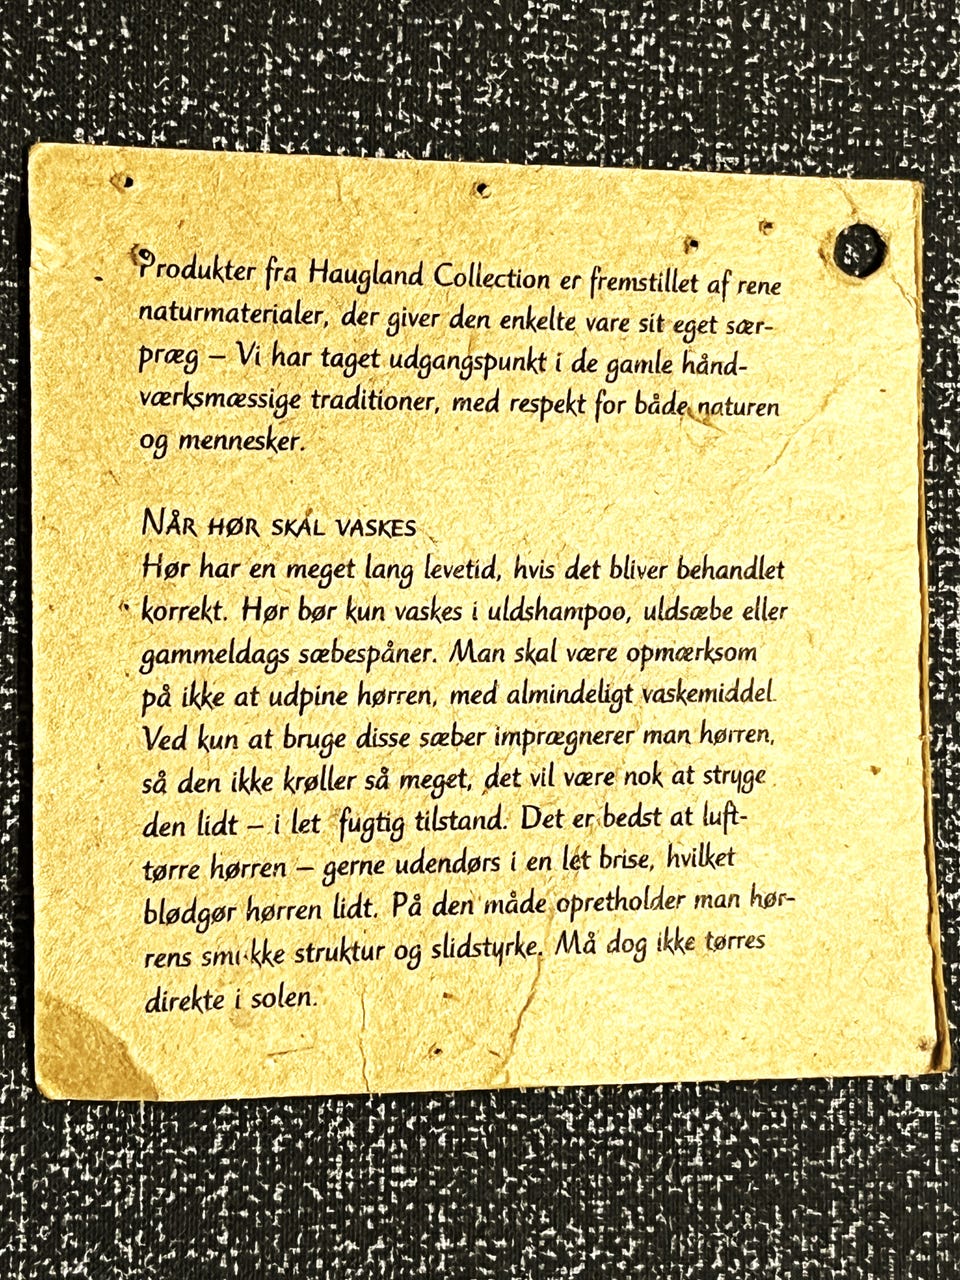 Produkter fra Haugland Collection er fremstillet af rene
naturmaterialer, der giver den enkelte vare sit eget sær-
præg – Vi har taget udgangspunkt i de gamle hånd-
værksmæssige traditioner, med respekt for både naturen
og mennesker.
NÅR HØR SKAL VASKES
Hør har en meget lang levetid, hvis det bliver behandlet
korrekt. Hør bør kun vaskes i uldshampoo, uldsæbe eller
gammeldags sæbespåner. Man skal være opmærksom
på ikke at udpine hørren, med almindeligt vaskemiddel.
Ved kun at bruge disse sæber imprægnerer man hørren,
så den ikke krøller så meget, det vil være nok at stryge
den lidt – i let fugtig tilstand. Det er bedst at luft-
tørre hørren – gerne udendørs i en let brise, hvilket
blødgør hørren lidt. På den måde opretholder man hør-
rens smukke struktur og slidstyrke. Må dog ikke tørres
direkte i solen.